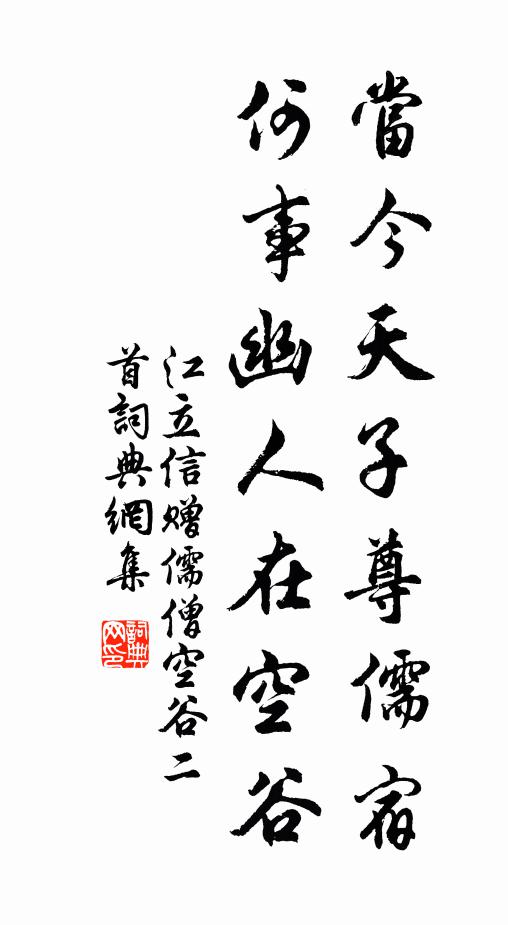 當今天子尊儒宿
何事幽人在空谷
江立信赠儒僧空谷二
首詞典網集
詞典网印